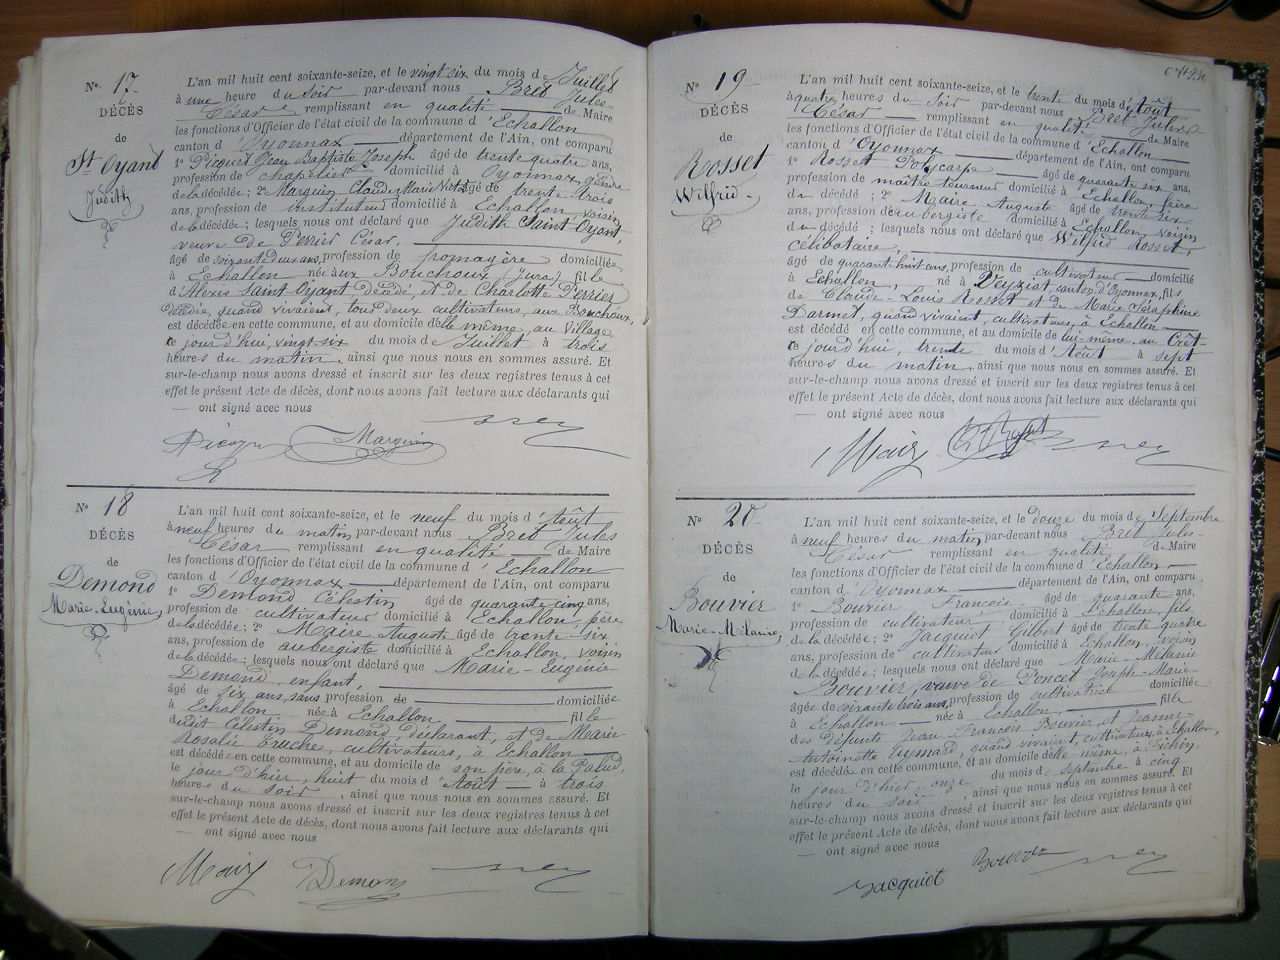 N° 17
DÉCÈS
de
St Oyant
Judith
L'an mil huit cent soixante-seize, et le vingt six du mois de Juillet
à une heure du Soir par-devant nous Bret Jules
César remplissant en qualité de Maire
les fonctions d'Officier de l'état civil de la commune d'Echallon
canton d'Oyonnax département de l'Ain, ont comparu
1° Picquet Jean Baptiste Joseph âgé de trente quatre ans,
profession de chapelier à Oyonnax, gendre
de la décédée; 2° Marguin Claude Marie âgé de trente-trois
ans, profession de instituteur domicilié à Echallon, voisin
de la décédée; lesquels nous ont déclaré que Judith Saint Oyant,
veuve de Perrier César,
âgé de soixante deux ans, profession de fromagère domiciliée
à Echallon née aux Bouchoux (Jura) fille
d'Alexis Saint Oyant décédé, et de Charlotte Perrier
décédée, quand vivaient, tous deux cultivateurs, aux Bouchoux,
est décédée en cette commune, et au domicile d'elle même, au Village
ce jourd'hui, vingt-six du mois de Juillet à trois
heures du matin, ainsi que nous nous en sommes assuré. Et
sur-le-champ nous avons dressé et inscrit sur les deux registres tenus à cet
effet le présent Acte de décès, dont nous avons fait lecture aux déclarants qui
— ont signé avec nous
Marguin
N° 18
DÉCÈS
de
Demond
Marie-Eugénie
L'an mil huit cent soixante-seize, et le neuf du mois d'Août
à neuf heures du matin par-devant nous Bret Jules
César remplissant en qualité de Maire
les fonctions d'Officier de l'état civil de la commune d'Echallon
canton d'Oyonnax département de l'Ain, ont comparu
1° Demond Célestin âgé de quarante cinq ans,
profession de cultivateur domicilié à Echallon, père
de la décédée; 2° Maire Auguste âgé de trente-six
ans, profession de aubergiste domicilié à Echallon, voisin
de la décédée; lesquels nous ont déclaré que Marie-Eugénie
Demond, enfant,
âgé de six ans, sans profession de domiciliée
à Echallon née à Echallon, fille
dudit Célestin Demond, déclarant, et de Marie
Rosalie Truche, cultivateurs, à Echallon
est décédée en cette commune, et au domicile de son père, à la Palud,
le jour d'hier, huit du mois d'Août à trois
heures du soir, ainsi que nous nous en sommes assuré. Et
sur-le-champ nous avons dressé et inscrit sur les deux registres tenus à cet
effet le présent Acte de décès, dont nous avons fait lecture aux déclarants qui
— ont signé avec nous
Demond
N° 19
DÉCÈS
de
Rosset
Wilfrid
L'an mil huit cent soixante-seize, et le trente du mois d'Août
à quatre heures du Soir par-devant nous Bret Jules
César remplissant en qualité de Maire
les fonctions d'Officier de l'état civil de la commune d'Echallon
canton d'Oyonnax département de l'Ain, ont comparu
1° Rosset Polycarpe âgé de quarante six ans,
profession de maître tourneur domicilié à Echallon, frère
du décédé; 2° Maire Auguste âgé de trente six
ans, profession d'aubergiste domicilié à Echallon, voisin
du décédé; lesquels nous ont déclaré que Wilfrid Rosset,
célibataire,
âgé de quarante huit ans, profession de cultivateur domicilié
à Echallon, né à Veyziat, canton d'Oyonnax, fils
de Claude-Louis Rosset et de Marie Séraphine
Darmet, quand vivaient, cultivateurs, à Echallon
est décédé en cette commune, et au domicile de lui-même, au Crêt-
ce jourd'hui, trente du mois d'Août à sept
heures du matin, ainsi que nous nous en sommes assuré. Et
sur-le-champ nous avons dressé et inscrit sur les deux registres tenus à cet
effet le présent Acte de décès, dont nous avons fait lecture aux déclarants qui
— ont signé avec nous
N° 20
DÉCÈS
de
Bouvier
Marie-Mélanie
L'an mil huit cent soixante-seize, et le douze du mois de Septembre
à neuf heures du matin par-devant nous Bret Jules
César remplissant en qualité de Maire
les fonctions d'Officier de l'état civil de la commune d'Echallon
canton d'Oyonnax département de l'Ain, ont comparu
1° Bouvier François âgé de quarante ans,
profession de cultivateur domicilié à Echallon, fils
de la décédée; 2° Jacquiot Gilbert âgé de trente quatre
ans, profession de cultivateur domicilié à Echallon, voisin
de la décédée; lesquels nous ont déclaré que Marie-Mélanie
Bouvier, veuve de Poncet Joseph-Marie
âgée de soixante trois ans, profession de cultivatrice domiciliée
à Echallon née à Echallon, fille
des défunts Jean-François Bouvier, et Jeanne-
Antoinette Eymard, quand vivaient, cultivateurs, à Echallon,
est décédée en cette commune, et au domicile d'elle même, à
le jour d'hier, onze du mois de Septembre à cinq
heures du soir, ainsi que nous nous en sommes assuré. Et
sur-le-champ nous avons dressé et inscrit sur les deux registres tenus à cet
effet le présent Acte de décès, dont nous avons fait lecture aux déclarants qui
— ont signé avec nous
Jacquiot Bouvier